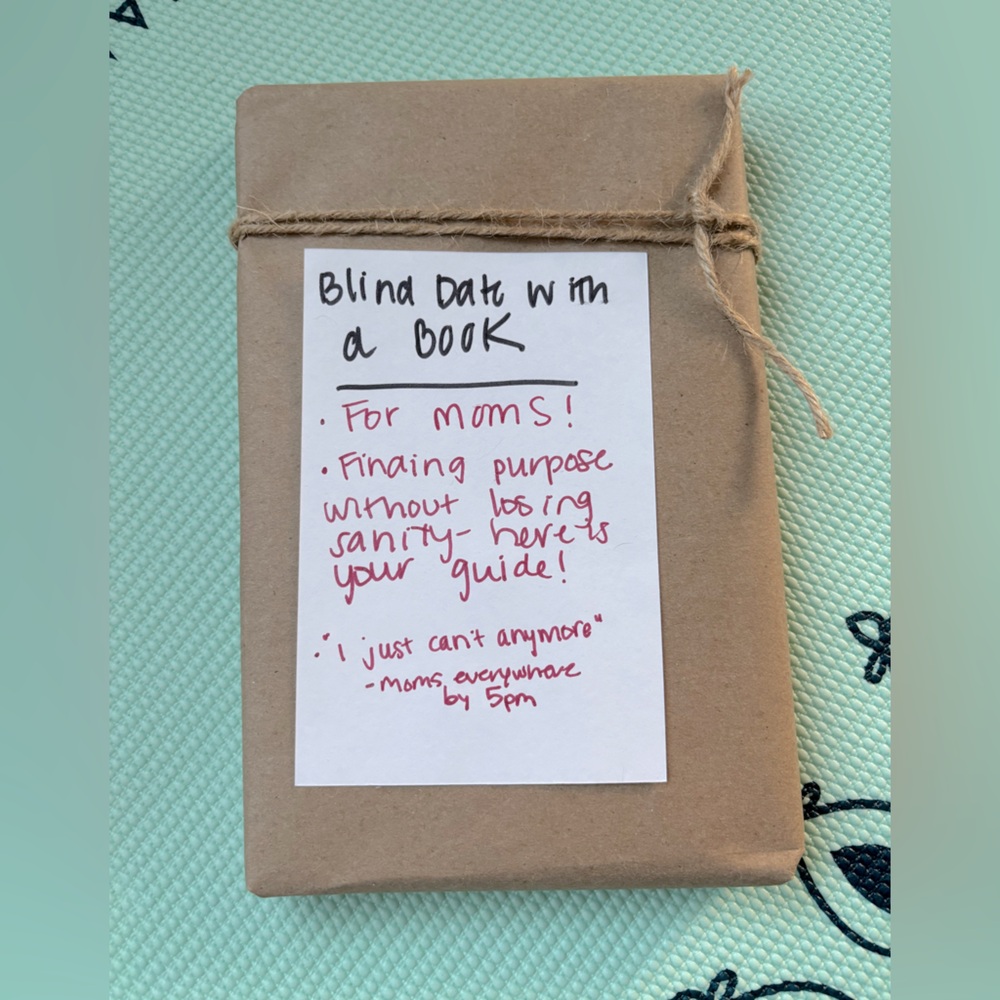 Blind Date with
a BOOK
• For moms!
• Finding purpose
without losing
sanity- here is
your guide!
• "I just can't anymore"
- moms everywhere
by 5pm